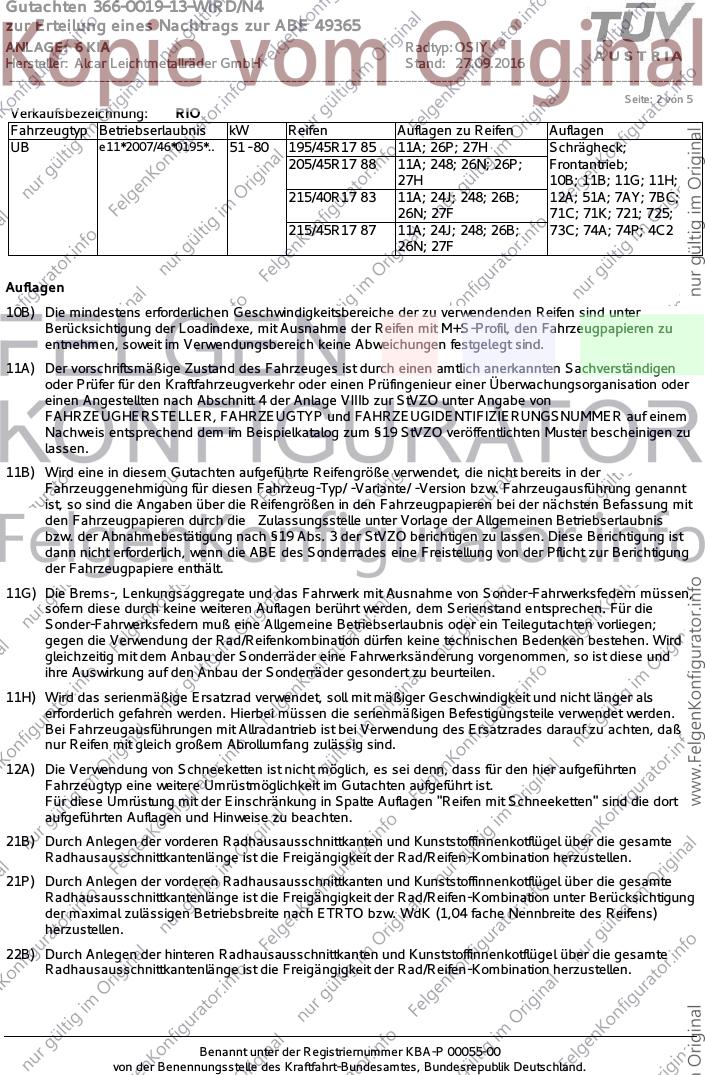 Gutachten 366-0019-13-WIRD/N4
zur Erteilung eines Nachtrags zur ABE 49365
ANLAGE: 6 KIA
Hersteller: Alcar Leichtmetallräder GmbH
Radtyp: OSIY
Stand: 27.09.2016
TÜV
AUSTRIA
Kopie vom Original
Seite: 2 von 5
Verkaufsbezeichnung: RIO
Fahrzeugtyp Betriebserlaubnis kW Reifen Auflagen zu Reifen Auflagen
UB e11*2007/46*0195*.. 51-80 195/45R17 85 11A; 26P; 27H Schrägheck;
205/45R17 88 11A; 248; 26N; 26P; Frontantrieb;
27H 10B; 11B; 11G; 11H;
215/40R17 83 11A; 24J; 248; 26B; 12A; 51A; 7AY; 7BC;
26N; 27F 71C; 71K; 721; 725;
215/45R17 87 11A; 24J; 248; 26B; 73C; 74A; 74P; 4C2
26N; 27F
Auflagen
10B) Die mindestens erforderlichen Geschwindigkeitsbereiche der zu verwendenden Reifen sind unter
Berücksichtigung der Loadindexe, mit Ausnahme der Reifen mit M+S-Profil, den Fahrzeugpapieren zu
entnehmen, soweit im Verwendungsbereich keine Abweichungen festgelegt sind.
11A) Der vorschriftsmäßige Zustand des Fahrzeuges ist durch einen amtlich anerkannten Sachverständigen
oder Prüfer für den Kraftfahrzeugverkehr oder einen Prüfingenieur einer Überwachungsorganisation oder
einen Angestellten nach Abschnitt 4 der Anlage VIIIb zur StVZO unter Angabe von
FAHRZEUGHERSTELLER, FAHRZEUGTYP und FAHRZEUGIDENTIFIZIERUNGSNUMMER auf einem
Nachweis entsprechend dem im Beispielkatalog zum §19 StVZO veröffentlichten Muster bescheinigen zu
lassen.
11B) Wird eine in diesem Gutachten aufgeführte Reifengröße verwendet, die nicht bereits in der
Fahrzeuggenehmigung für diesen Fahrzeug-Typ/ -Variante/ -Version bzw. Fahrzeugausführung genannt
ist, so sind die Angaben über die Reifengrößen in den Fahrzeugpapieren bei der nächsten Befassung mit
den Fahrzeugpapieren durch die Zulassungsstelle unter Vorlage der Allgemeinen Betriebserlaubnis
bzw. der Abnahmebestätigung nach §19 Abs. 3 der StVZO berichten zu lassen. Diese Berichtigung ist
dann nicht erforderlich, wenn die ABE des Sonderrades eine Freistellung von der Pflicht zur Berichtigung
der Fahrzeugpapiere enthält.
11G) Die Brems-, Lenkungsaggregate und das Fahrwerk mit Ausnahme von Sonder-Fahrwerksfedern müssen,
sofern diese durch keine weiteren Auflagen berührt werden, dem Serienstand entsprechen. Für die
Sonder-Fahrwerksfedern muß eine Allgemeine Betriebserlaubnis oder ein Teilegutachten vorliegen;
gegen die Verwendung der Rad/Reifenkombination dürfen keine technischen Bedenken bestehen. Wird
gleichzeitig mit dem Anbau der Sonderräder eine Fahrwerksänderung vorgenommen, so ist diese und
ihre Auswirkung auf den Anbau der Sonderräder gesondert zu beurteilen.
11H) Wird das serienmäßige Ersatzrad verwendet, soll mit mäßiger Geschwindigkeit und nicht länger als
erforderlich gefahren werden. Hierbei müssen die serienmäßigen Befestigungsteile verwendet werden.
Bei Fahrzeugausführungen mit Allradantrieb ist bei Verwendung des Ersatzrades darauf zu achten, daß
nur Reifen mit gleich großem Abrollumfang zulässig sind.
12A) Die Verwendung von Schneeketten ist nicht möglich, es sei denn, dass für den hier aufgeführten
Fahrzeugtyp eine weitere Umrüstmöglichkeit im Gutachten aufgeführt ist.
Für diese Umrüstung mit der Einschränkung in Spalte Auflagen "Reifen mit Schneeketten" sind die dort
aufgeführten Auflagen und Hinweise zu beachten.
21B) Durch Anlegen der vorderen Radhausausschnittkanten und Kunststoffinnenkotflügel über die gesamte
Radhausausschnittkantenlänge ist die Freigängigkeit der Rad/Reifen-Kombination herzustellen.
21P) Durch Anlegen der vorderen Radhausausschnittkanten und Kunststoffinnenkotflügel über die gesamte
Radhausausschnittkantenlänge ist die Freigängigkeit der Rad/Reifen-Kombination unter Berücksichtigung
der maximal zulässigen Betriebsbreite nach ETRTO bzw. WdK (1,04 fache Nennbreite des Reifens)
herzustellen.
22B) Durch Anlegen der hinteren Radhausausschnittkanten und Kunststoffinnenkotflügel über die gesamte
Radhausausschnittkantenlänge ist die Freigängigkeit der Rad/Reifen-Kombination herzustellen.
Benannt unter der Registriernummer KBA-P 00055-00
von der Benennungsstelle des Kraftfahrt-Bundesamtes, Bundesrepublik Deutschland.
FELGEN
KONFIGURATOR
FelgenKonfigurator.info
nur gültig im Original
www.FelgenKonfigurator.info